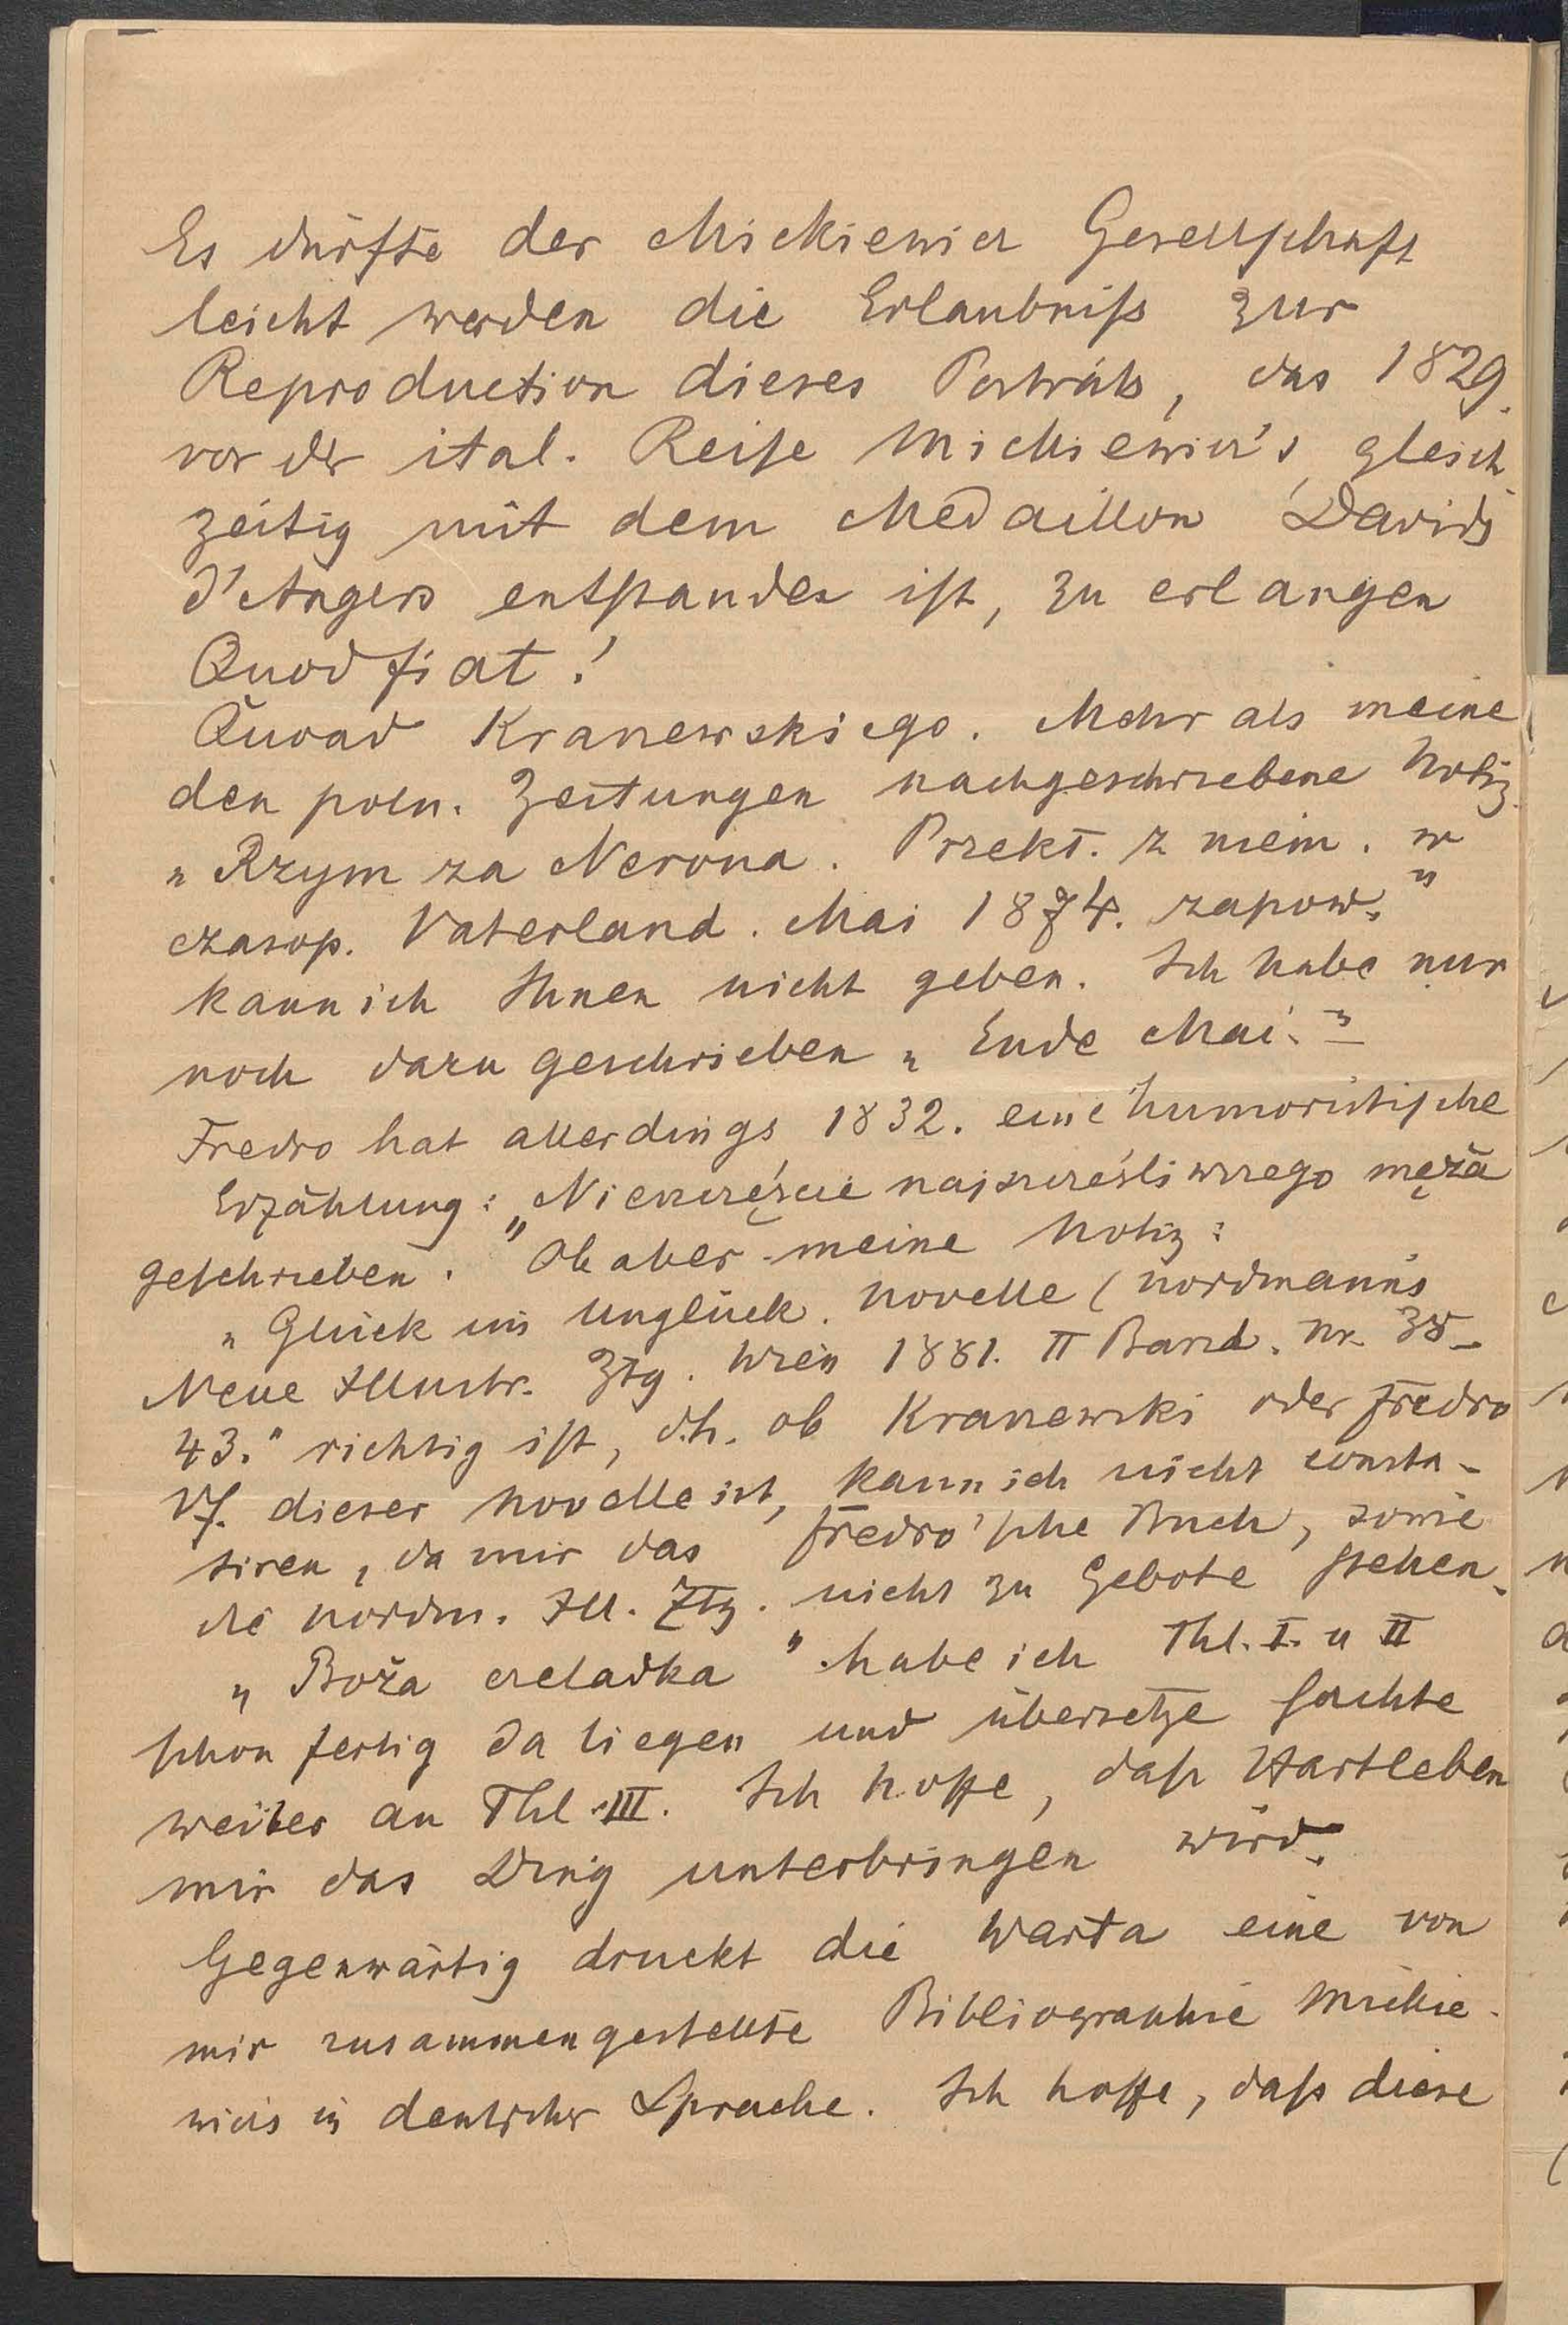 Es dürfte der Mickiewicz Gesellschaft
leicht werden die Erlaubniß zur
Reproduction dieses Porträts, das 1829.
vor der ital. Reise Mickiewicz's, gleich
zeitig mit dem Medaillon Davids
d'Angers entstanden ist, zu erlangen
Quod fiat!
Quoad Kraszewskiego. Mehr als meine
den poln. Zeitungen nachgeschriebene Notiz
„Rzym za Nerona. Przekł. z niem. w
czasop. Vaterland. Mai 1874. zapow."
kann ich Ihnen nicht geben. Ich habe nur
noch dazu geschrieben „Ende Mai."
Fredro hat allerdings 1832. eine humoristische
Erzählung: „Nieszczęście najszczęśliwszego męża
geschrieben." Ob aber meine Notiz:
„Glück im Unglück. Novelle (Nordmann's
Neue Illustr. Ztg. Wien 1881. II Band. Nr. 38-
43." richtig ist, d.h. ob Kraszewski oder Fredro
Vf. dieser Novelle ist, kann ich nicht consta-
tiren, da mir das Fredro'sche Buch, sowie
die Nordm. Ill. Ztg. nicht zu Gebote stehen.
„Boża czeladka" habe ich Thl. I. u II
schon fertig da liegen und übersetze sachte
weiter an Thl. III. Ich hoffe, daß Hartleben
mir das Ding unterbringen wird.
Gegenwärtig druckt die Warta eine von
mir zusammengestellte Bibliographie Mickie-
wicz in deutscher Sprache. Ich hoffe, daß diese